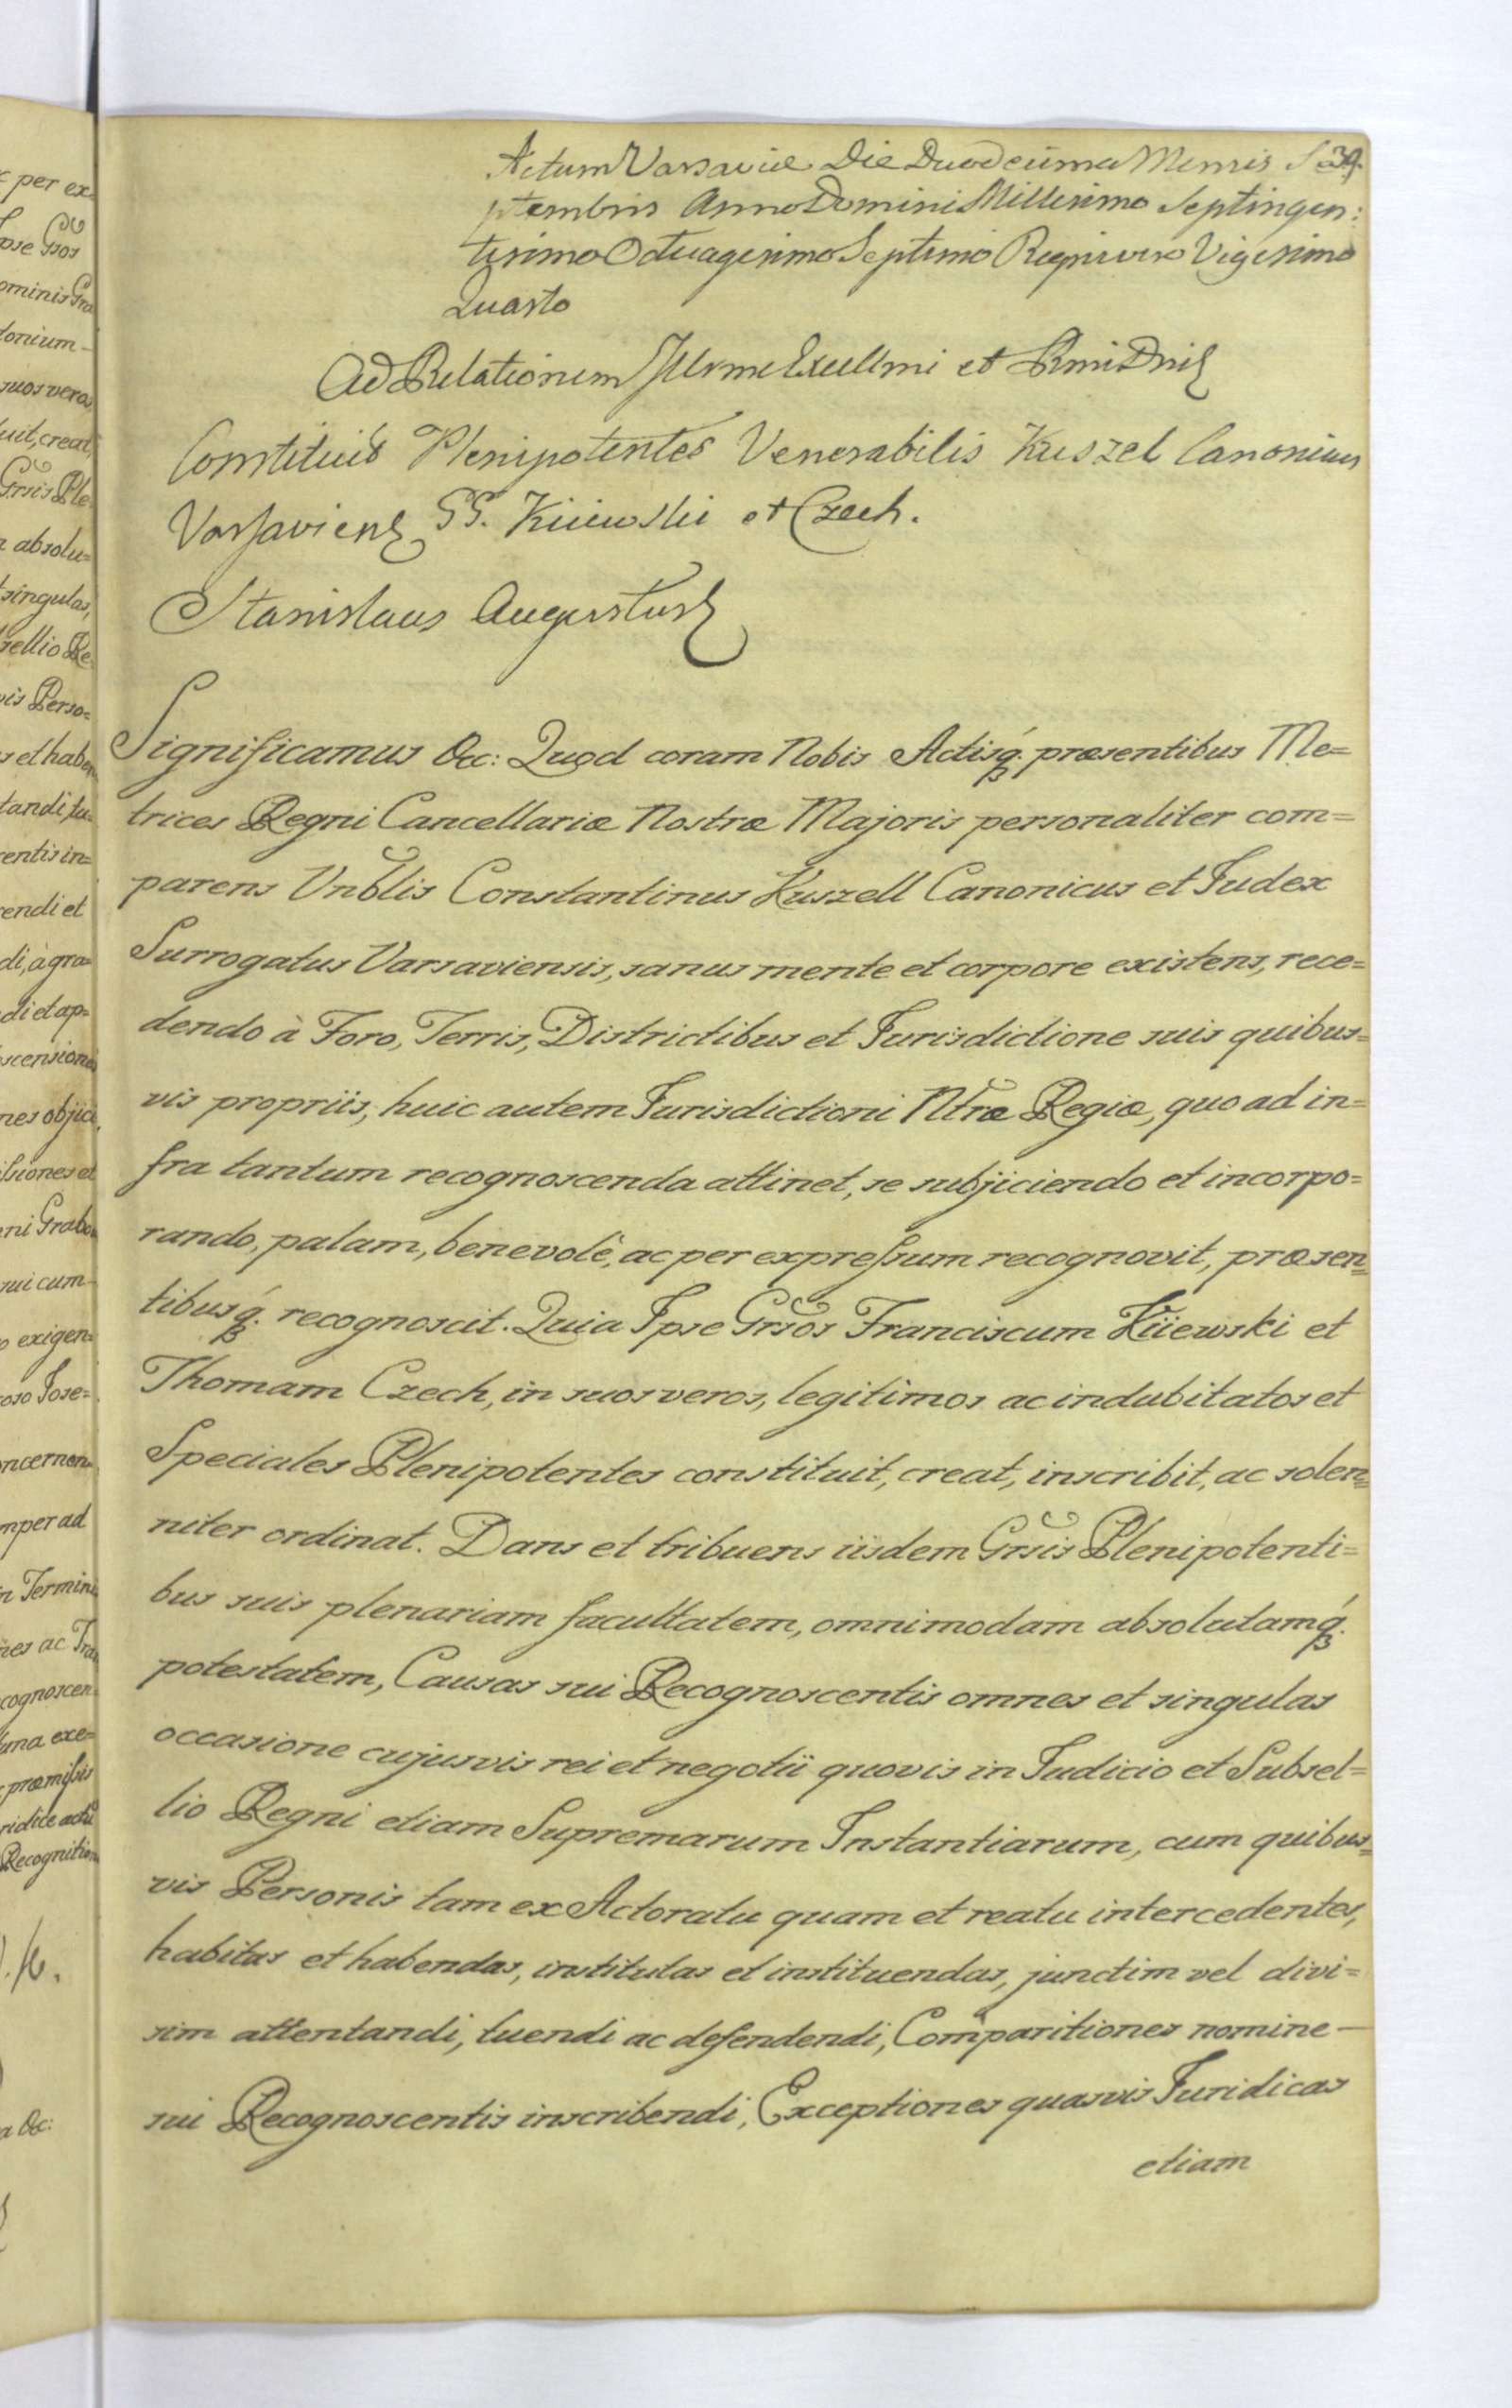 c per ex=
Ipse Grsos
ominis Gra
tonium
suos veros
uit, creat,
Grsis Ple
absolu=
singulas,
sellio Re
vis Perso=
s et haben
tandi, tu
entis in=
rendi et
di, à gra=
di et ap=
scensiones
nes objici
et
ni Grabo
sui cum
o exigen=
oso Jose=
oncernen
mper ad
n Termin
ac
cognoscen
una exe=
præmissis
ridice
Recognition
&c:
34.
Actum Varsaviæ Die Duodecima Mensis Se
ptembris Anno Domini Millesimo Septingen:
tesimo Octuagesimo Septimo Regni vero Vigesimo
Quarto
Ad Relationem Illrme Excellmi et Rmi Dni
Constituit Plenipotentes Venerabilis Kuszel Canonicus
Varsaviens GG. Kiiewski et Czech.
Stanislaus Augustus
Significamus &c: Quod coram Nobis Actisq́. præsentibus Me=
trices Regni Cancellariæ Nostræ Majoris personaliter com=
parens Vnblis Constantinus Kuszell Canonicus et Judex
Surrogatus Varsaviensis, sanus mente et corpore existens, rece=
dendo à Foro, Terris, Districtibus et Jurisdictione suis quibus=
vis propriis, huic autem Jurisdictioni Ntræ Regiæ, quo ad in=
fra tantum recognoscenda attinet, se subjiciendo et incorpo=
rando, palam, benevolè, ac per expressum recognovit, præsen=
tibusq́. recognoscit. Quia Ipse Grsos Franciscum Kiiewski et
Thomam Czech, in suos veros, legitimos ac indubitatos et
Speciales Plenipotentes constituit, creat, inscribit, ac solen=
niter ordinat. Dans et tribuens iisdem Grsis Plenipotenti=
bus suis plenariam facultatem, omnimodam absolutamq́.
potestatem, Causas sui Recognoscentis omnes et singulas
occasione cujusvis rei et negotii quovis in Judicio et Subsel=
lio Regni etiam Supremarum Instantiarum, cum quibus=
vis Personis tam ex Actoratu quam et reatu intercedentes,
habitas et habendas, institutas et instituendas, junctim vel divi=
sim attentandi, tuendi ac defendendi, Comparitiones nomine
sui Recognoscentis inscribendi, Exceptiones quasvis Juridicas
etiam